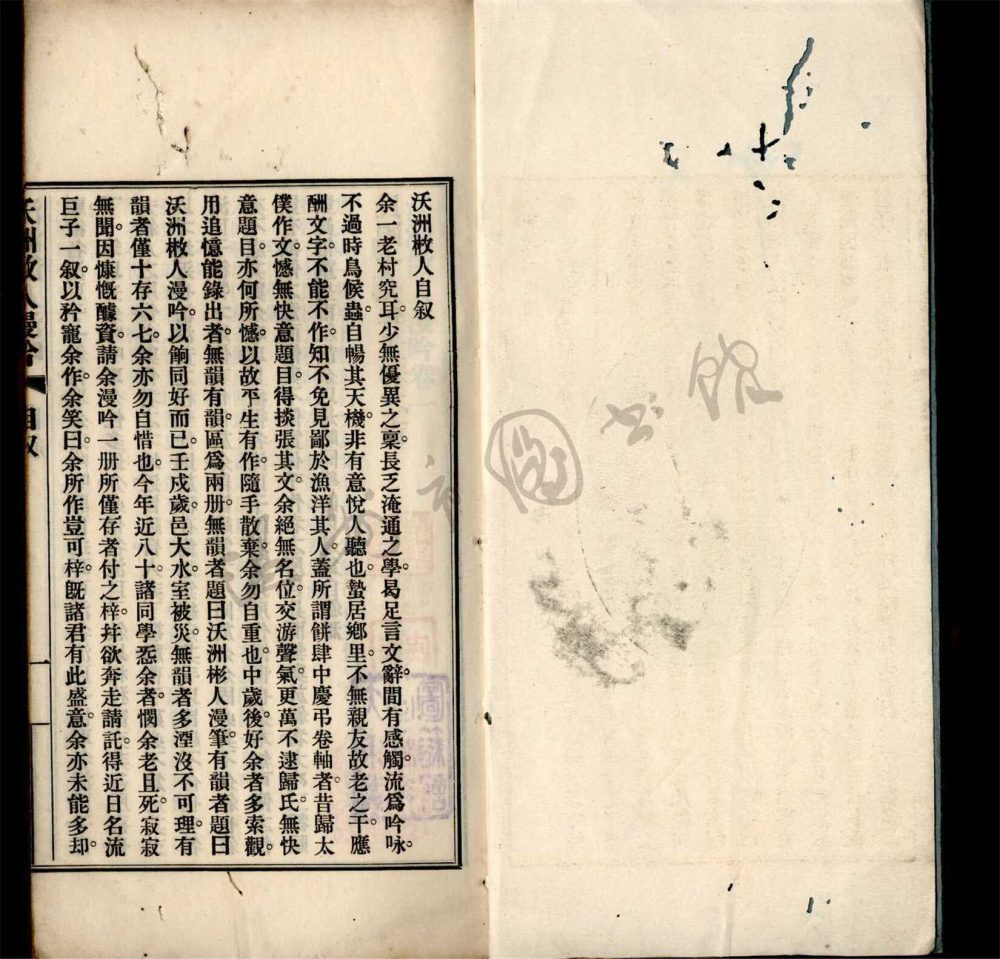 沃洲𢽾人自叙
余一老村究耳。少無優異之稟。長乏淹通之學。曷足言文辭。間有感觸。流爲吟咏。
不過時鳥候蟲。自暢其天機。非有意悅人聽也。蟄居鄉里。不無親友故老之干應
酬文字。不能不作。知不免見鄙於漁洋其人。蓋所謂餅肆中慶弔卷軸者。昔歸太
僕作文。憾無快意題目。得掞張其文。余絕無名位。交游聲氣。更萬不逮歸氏。無快
意題目。亦何所憾。以故平生有作。隨手散棄。余勿自重也。中歲後。好余者多索觀。
用追憶能錄出者。無韻有韻。區爲兩册。無韻者題曰沃洲彬人漫筆。有韻者題曰
沃洲𢽾人漫吟。以餉同好而已。壬戌歲。邑大水。室被災。無韻者多湮沒不可理。有
韻者僅十存六七。余亦勿自惜也。今年近八十。諸同學惎余者。憫余老且死。寂寂
無聞。因慷慨醵資。請余漫吟一册所僅存者付之梓。幷欲奔走請託。得近日名流
巨子一叙。以矜寵余作。余笑曰。余所作豈可梓。旣諸君有此盛意。余亦未能多却。
自叙
一
圖
書
館